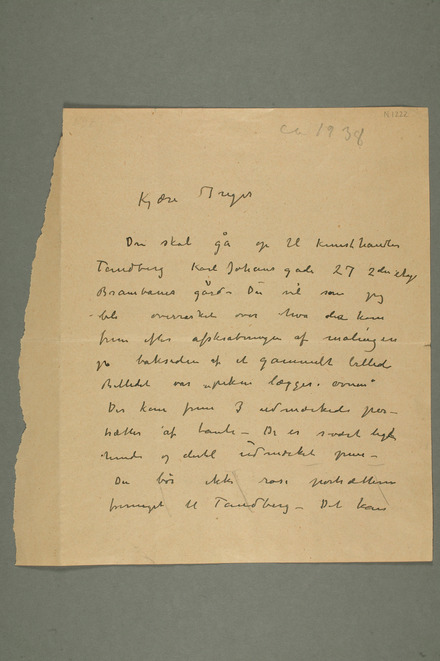 N 1222
ca 1938
Kjære Inger
Du skal gå op til kunsthandler
Tandberg Karl Johans gade 27 2den etage
gård. Du vil som jeg
bli overrasket over hva der kom
frem efter afskrabningen af malingen
på baksiden af et gammelt billed
Billedet var „piken lægger i ovnen"
Der kom frem 3 udmærkede por-
trætter af tante – De er svært lig-
nende og dertil udmærket
Du bør ikke rose portrættene
formeget til Tandberg – Det kan